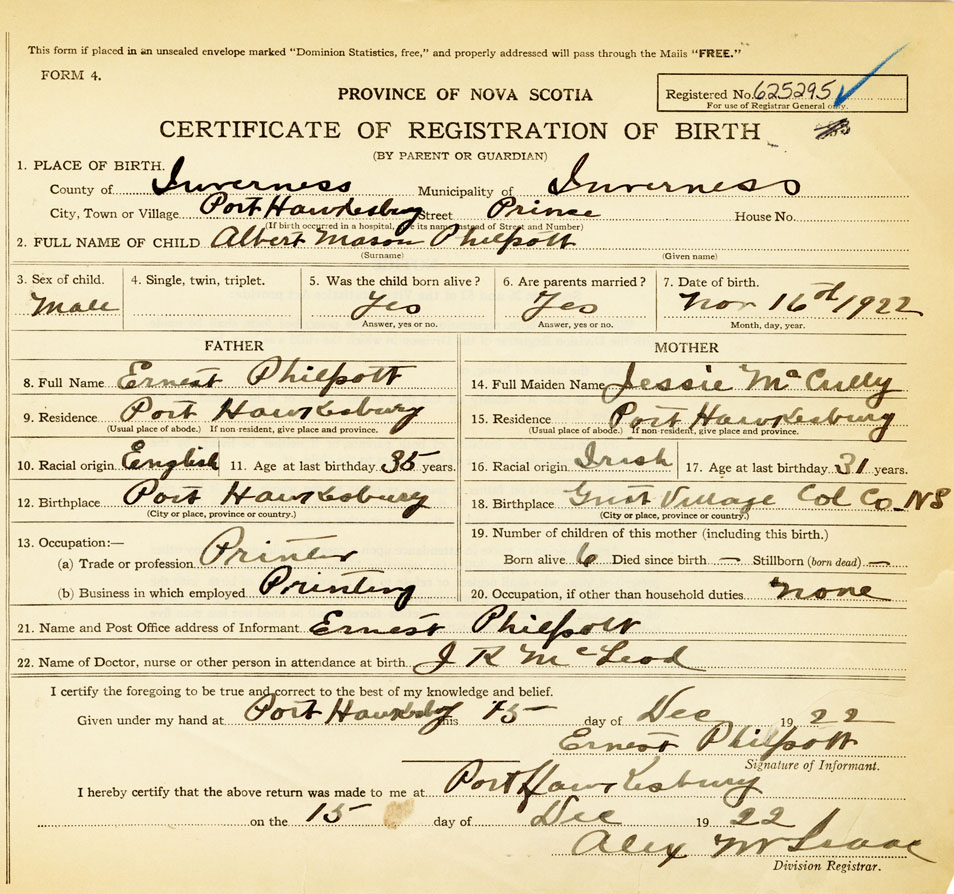 This form if placed in an unsealed envelope marked "Dominion Statistics, free," and properly addressed will pass through the Mails "FREE."
FORM 4.
Registered No. 625295
For use of Registrar General only.
PROVINCE OF NOVA SCOTIA
CERTIFICATE OF REGISTRATION OF BIRTH
(BY PARENT OR GUARDIAN)
1. PLACE OF BIRTH.
County of Inverness Municipality of Inverness
City, Town or Village Port Hawkesbury Street Prince House No.
(If birth occurred in a hospital, give its name instead of Street and Number)
2. FULL NAME OF CHILD Albert Mason Philpott
(Surname) (Given name)
3. Sex of child. 4. Single, twin, triplet. 5. Was the child born alive? 6. Are parents married? 7. Date of birth.
Male Yes Yes Nov 16 1922
Answer, yes or no. Answer, yes or no. Month, day, year.
FATHER MOTHER
8. Full Name Ernest Philpott 14. Full Maiden Name Jessie McCully
9. Residence Port Hawkesbury 15. Residence Port Hawkesbury
(Usual place of abode.) If non resident, give place and province. (Usual place of abode.) If non-resident, give place and province.
10. Racial origin English 11. Age at last birthday 35 years. 16. Racial origin Irish 17. Age at last birthday 31 years.
12. Birthplace Port Hawkesbury 18. Birthplace Village Col Co. NS
(City or place, province or country.) (City or place, province or country.)
13. Occupation:— 19. Number of children of this mother (including this birth.)
(a) Trade or profession Printer Born alive 6 Died since birth — Stillborn (born dead) —
(b) Business in which employed Printing 20. Occupation, if other than household duties none
21. Name and Post Office address of Informant Ernest Philpott
22. Name of Doctor, nurse or other person in attendance at birth. J R McLeod
I certify the foregoing to be true and correct to the best of my knowledge and belief.
Given under my hand at Port Hawkesbury this 15 day of Dec 19 22
Ernest Philpott
Signature of Informant.
I hereby certify that the above return was made to me at Port Hawkesbury
on the 15 day of Dec 19 22
Alex McIsaac
Division Registrar.